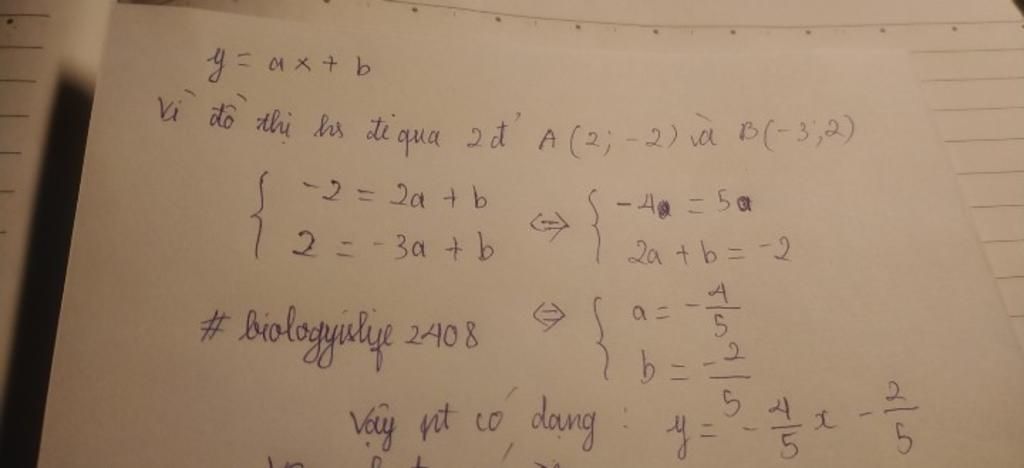 y = ax + b
Vì đồ thị hs đi qua 2 đ' A(2; -2) và B(-3;2)
{ -2 = 2a + b ⇔ { -4 = 5a
2 = -3a + b 2a + b = -2
# biologyislife 2408 ⇔ { a = -4/5
b = -2/5
Vậy pt có dạng : y = -4/5 x - 2/5